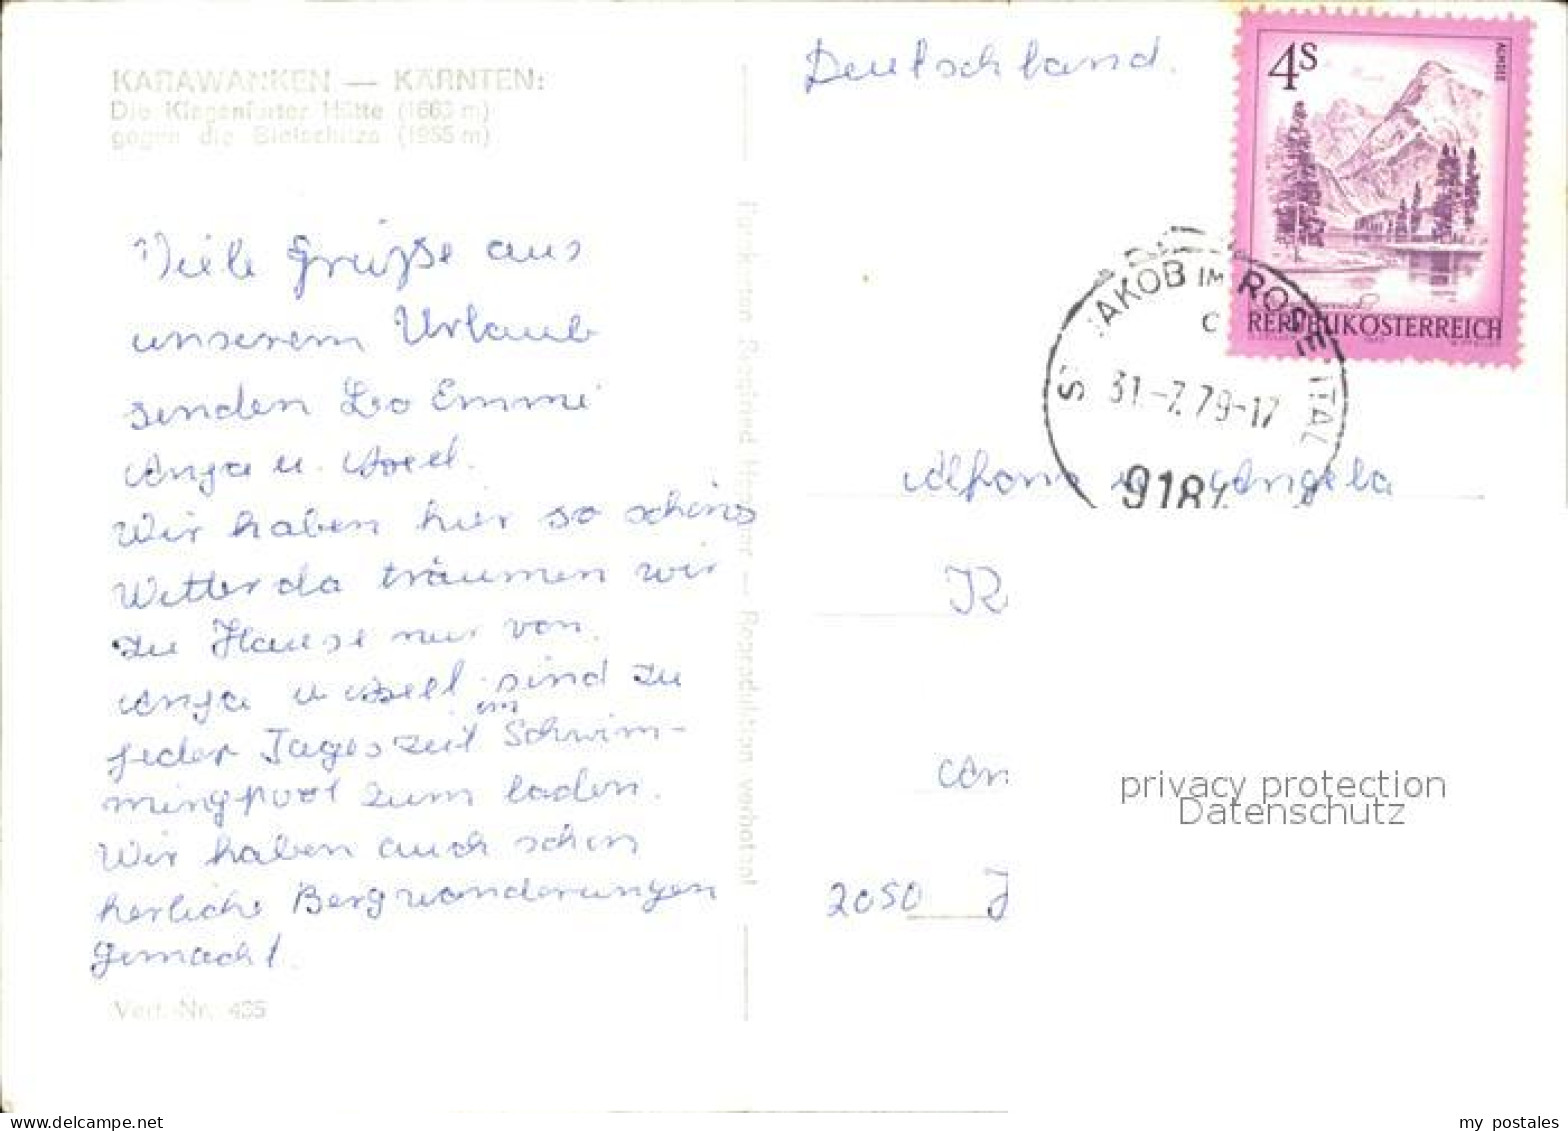 KARAWANKEN — KÄRNTEN:
Die Klagenfurter Hütte (1663 m)
gegen die Bielschitza (1955 m)
Viele Grüße aus
unserem Urlaub
senden Leo Emmi
Anja u. Axel.
Wir haben hier so schönes
Wetter da träumen wir
zu Hause nur von.
Anja u Axell sind zu
jeder Tageszeit im Schwim-
mingpool zum baden.
Wir haben auch schon
herliche Bergwanderungen
gemacht.
Verl.-Nr. 435
— Reproduktion verboten!
Deutschland.
4S
ALMSEE
REPUBLIK ÖSTERREICH
ST. JAKOB IM ROSENTAL
C
31.-7.79-17
918
Alfons u. Angela
An
2050
privacy protection
Datenschutz
my postales